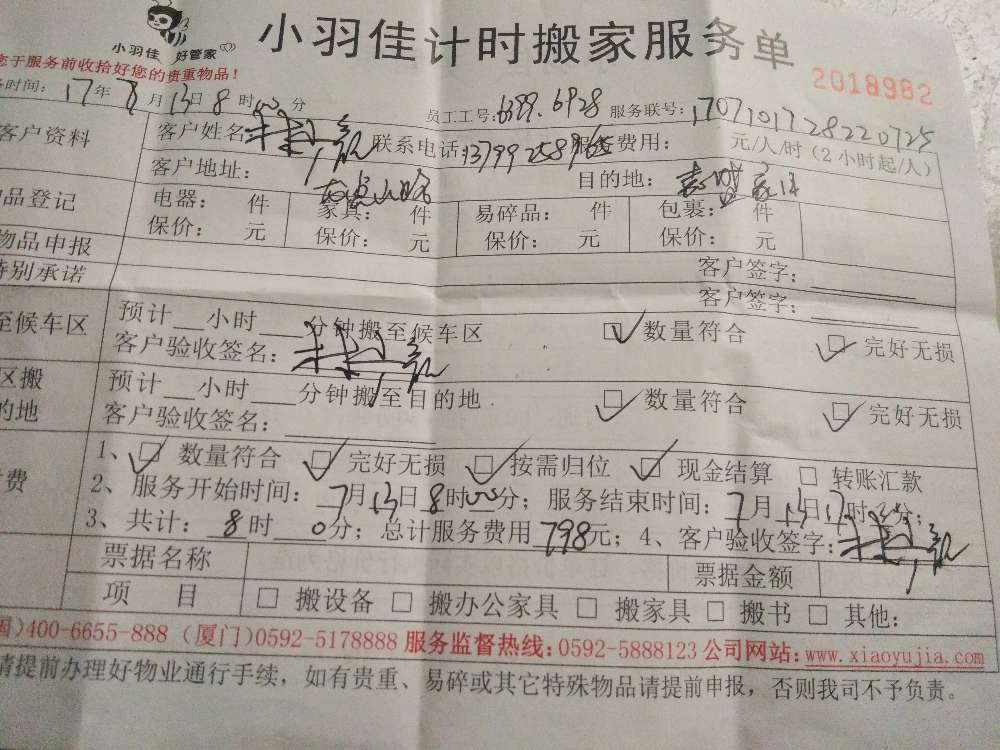 小羽佳 好管家
小羽佳计时搬家服务单
您于服务前收拾好您的贵重物品！
2018982
时间：17年 月13日8时00分 员工工号：6399.6928 服务联号：1707101728220725
客户资料 客户姓名 联系电话： 服务费用： 元/人/时（2小时起/人）
客户地址： 目的地：
品登记 电器： 件 家具： 件 易碎品： 件 包裹： 件
保价： 元 保价： 元 保价： 元 保价： 元
物品申报 客户签字：
特别承诺 客户签字：
至候车区 预计__小时__分钟搬至候车区 ☑数量符合 ☑完好无损
客户验收签名：
区搬 预计__小时__分钟搬至目的地 ☑数量符合 ☑完好无损
的地 客户验收签名：
1、☑数量符合 ☑完好无损 ☑按需归位 ☑现金结算 □转账汇款
费 2、服务开始时间：7月13日8时00分；服务结束时间：7月13日17时 分；
3、共计：8时0分；总计服务费用798元；4、客户验收签字：
票据名称 票据金额
项 目 □搬设备 □搬办公家具 □搬家具 □搬书 □其他：
国)400-6655-888（厦门)0592-5178888 服务监督热线：0592-5888123 公司网站：www.xiaoyujia.com
请提前办理好物业通行手续，如有贵重、易碎或其它特殊物品请提前申报，否则我司不予负责。